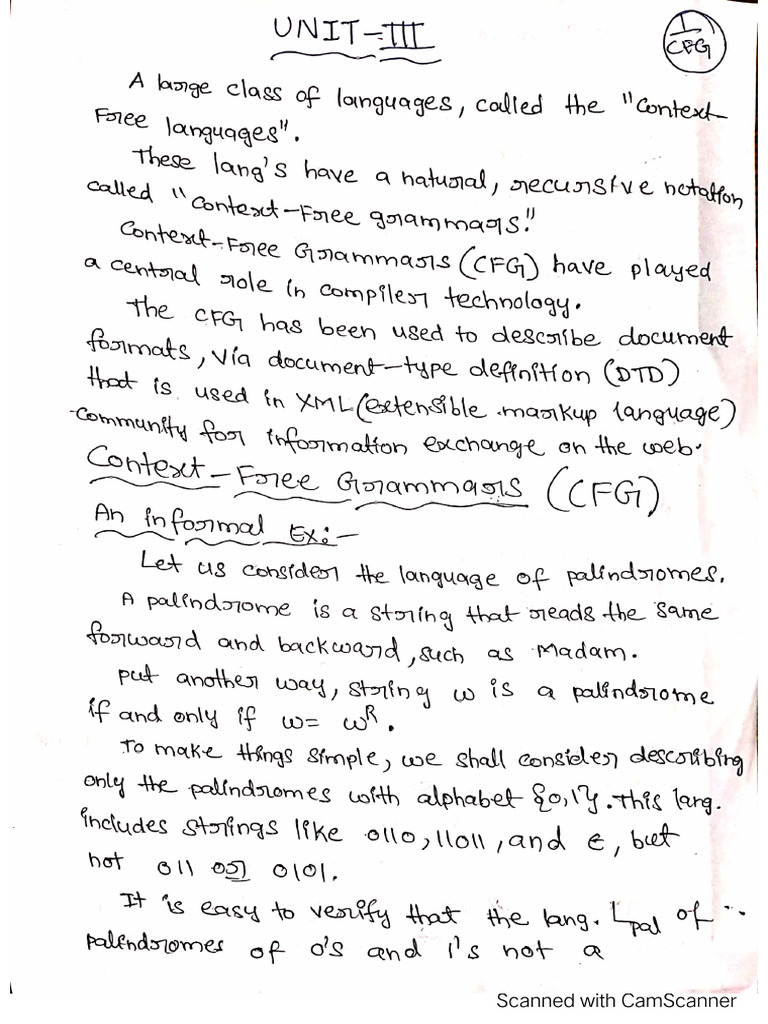 UNIT-III
1
CFG
A large class of languages, called the "Context-
Free languages".
These lang's have a natural, recursive notation
called "Context-Free grammars."
Context-Free Grammars (CFG) have played
a central role in compiler technology.
The CFG has been used to describe document
formats, via document-type definition (DTD)
that is used in XML (extensible markup language)
community for information exchange on the web.
Context-Free Grammars (CFG)
An informal Ex:-
Let us consider the language of palindromes.
A palindrome is a string that reads the same
forward and backward, such as Madam.
put another way, string w is a palindrome
if and only if w= wᴿ.
To make things simple, we shall consider describing
only the palindromes with alphabet {0,1}. This lang.
includes strings like 0110, 11011, and ε, but
not 011 or 0101.
It is easy to verify that the lang. Lpal of
palindromes of 0's and 1's not a
Scanned with CamScanner